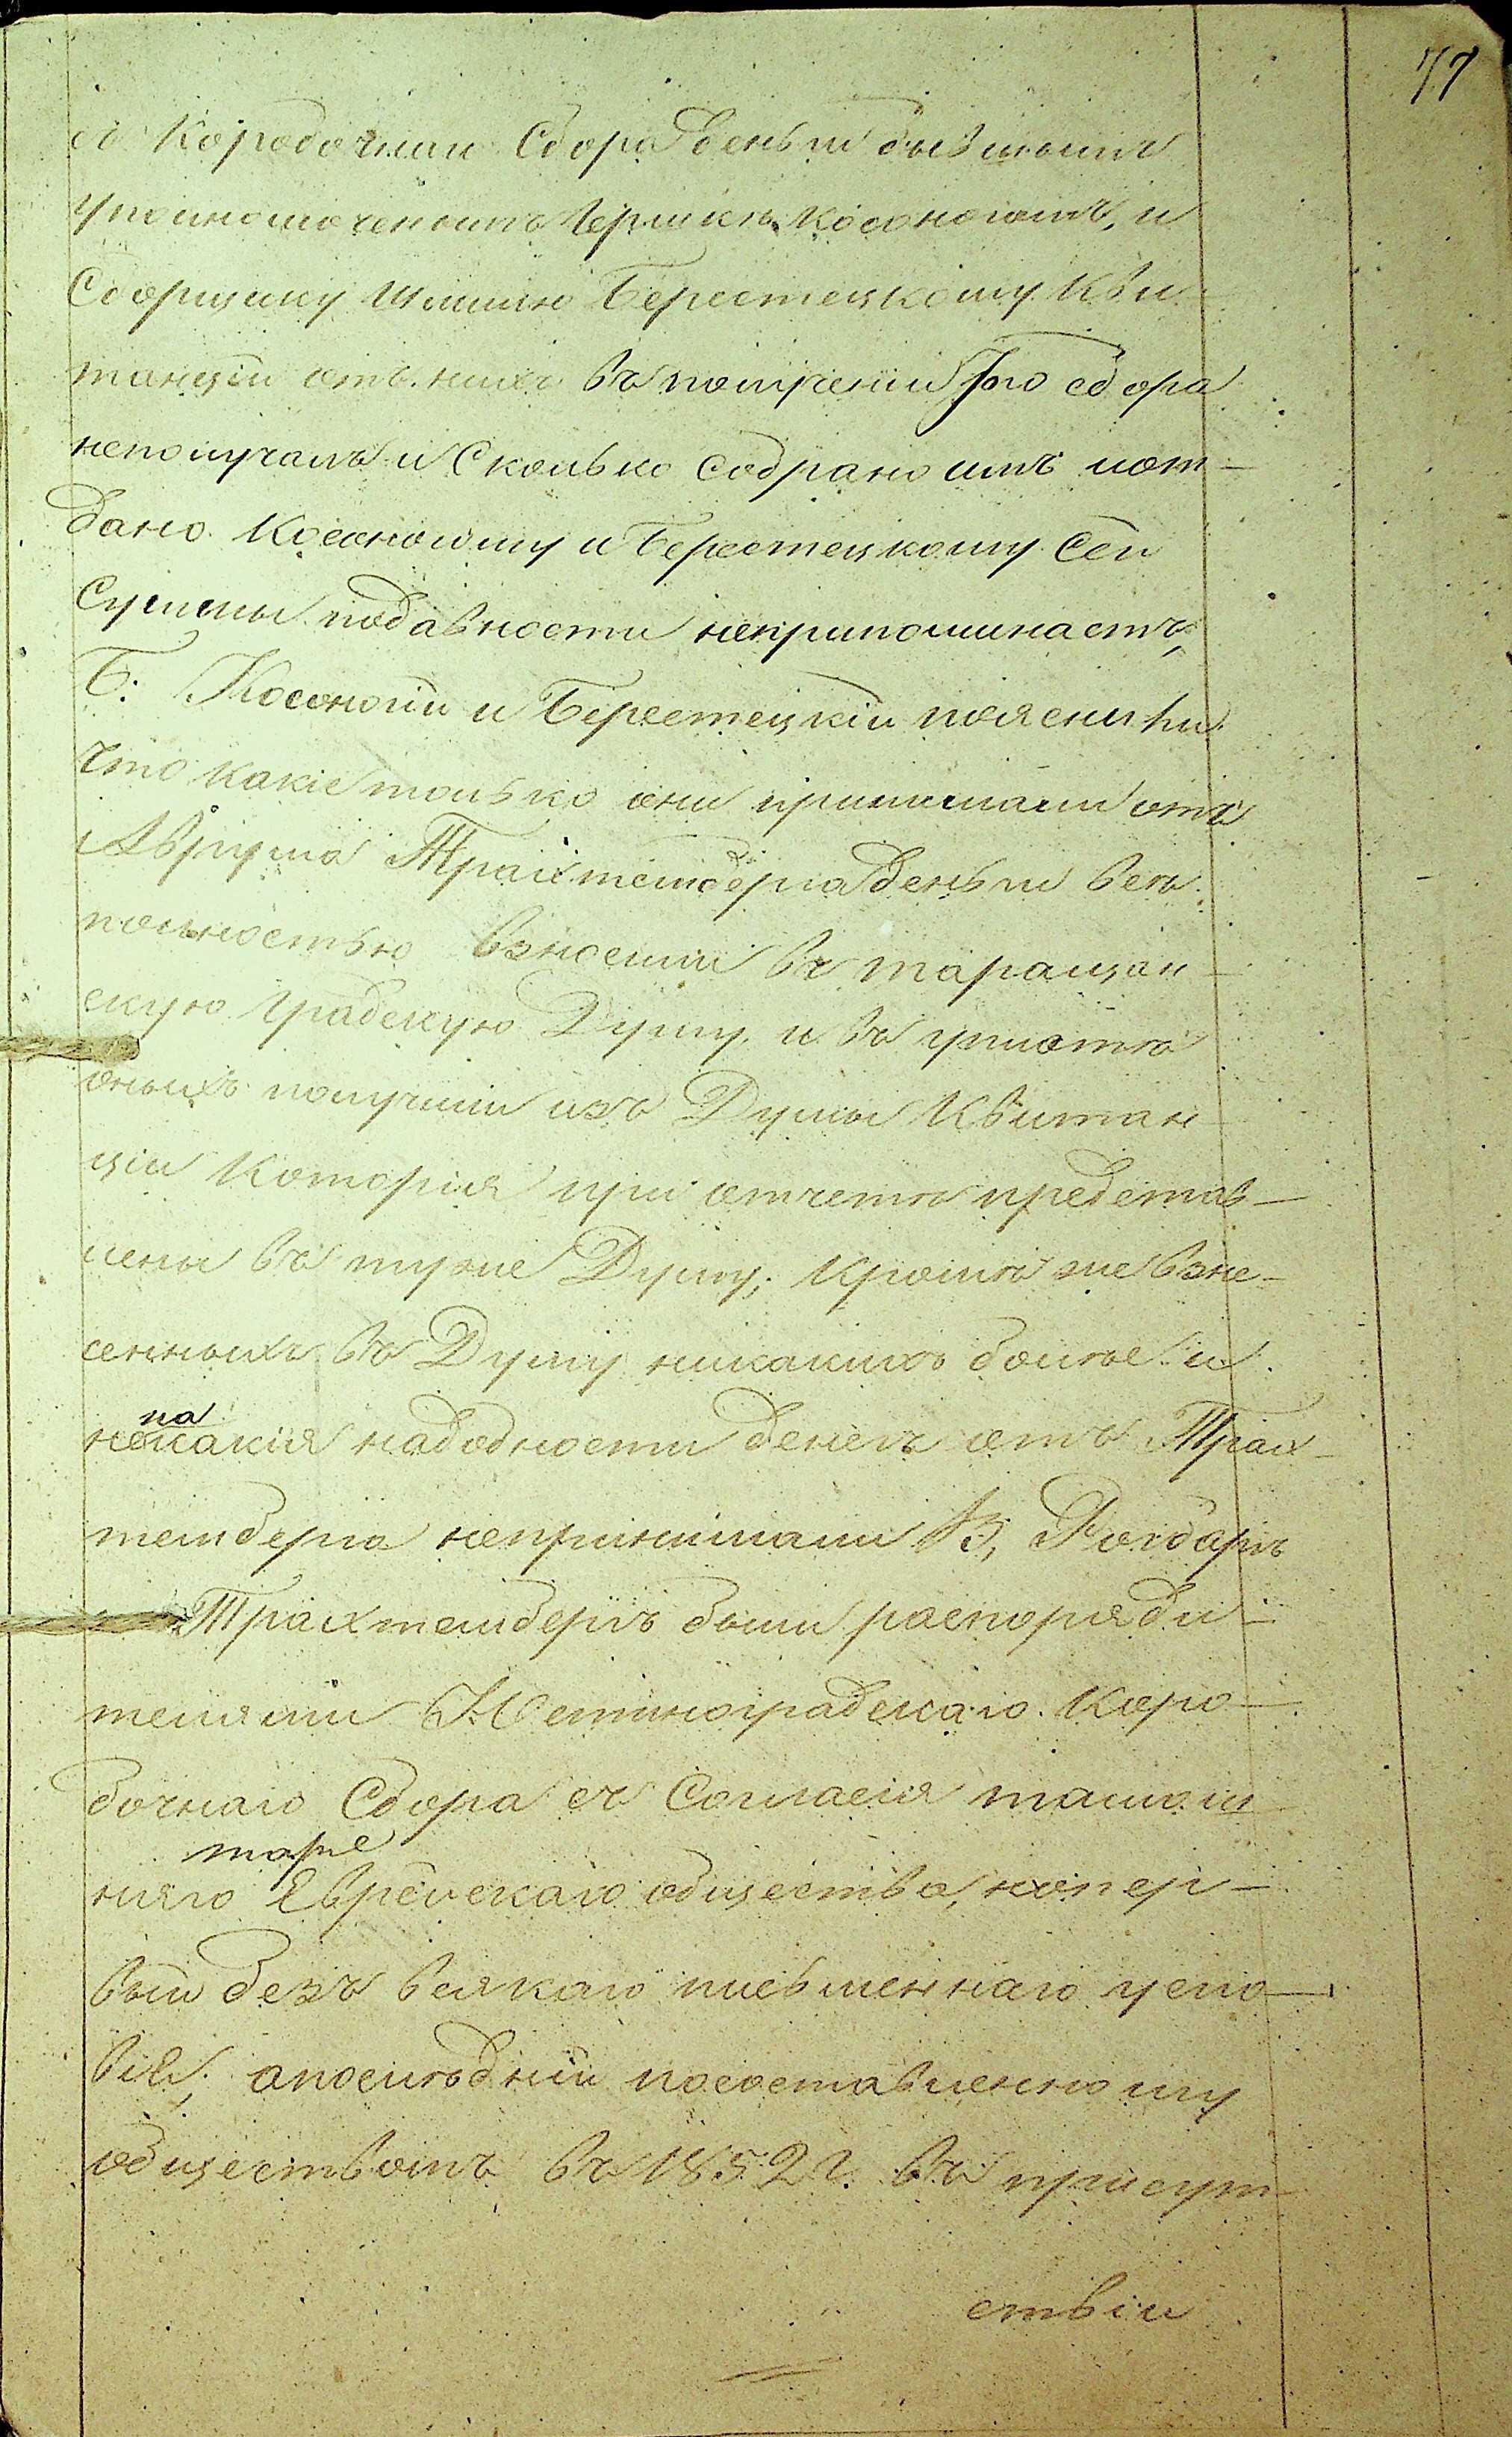 77
съ Коробочнаго Сбора деньги бывшимъ
уполномоченнымъ Гершкѣ Косоногомъ, и
Сборщику Шлиомѣ Берестецкому Кви-
танціи отъ нихъ въ полученіи сбора
неполучалъ и Сколько собрано имъ иот-
дано Косоногому и Берестецкому Сей
Суммы подавности неприпоминаетъ,
Б: Косоногій и Берестецкій пояснили
что какіе только они принимали отъ
Аврума Трахтенберга деньги всѣ
полностью взносили въ таращан-
скую Градскую Думу и въ уплатѣ
оныхъ получили изъ Думы Квитан-
ціи которія при отчетѣ представ-
лены въ туже Думу; Кромѣ же взне-
сенныхъ въ Думу никакихъ болѣе и
на
некакія надобности денегъ отъ Трах-
тенберга непринимали В, Голдаръ
Трахтенбергъ были распоряди-
телями Юстиноградскаго Коро-
бочнаго Сбора съ Согласія тамош-
тарже
няго Еврейскаго общества, нопер-
вый безъ всякаго письменнаго усло-
вія, апослѣдній посоставленному
обществомъ въ 1852 г. въ присут-
ствіи